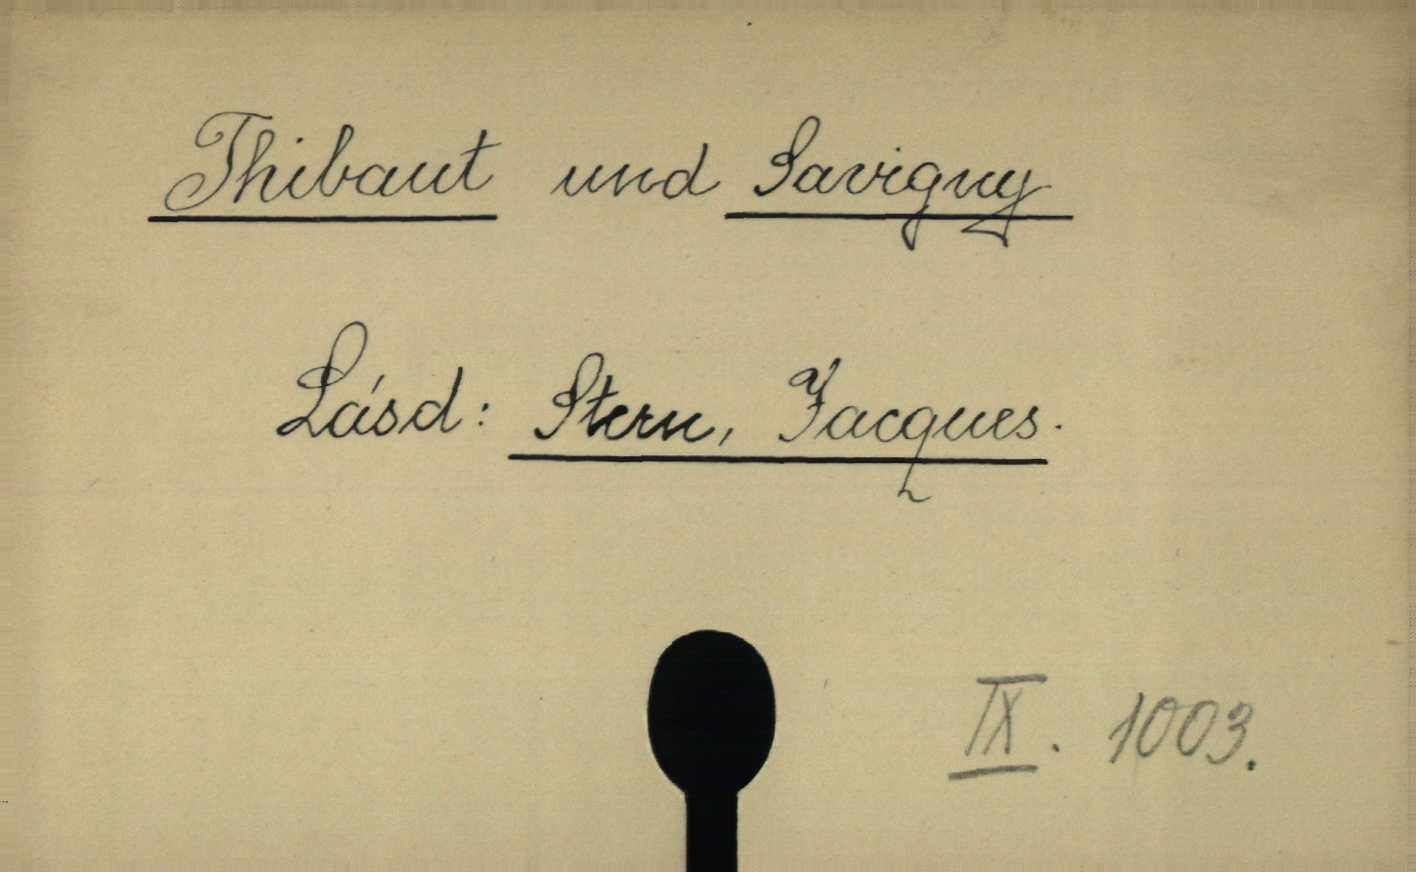 Thibaut und Savigny
Lásd: Stern, Jacques.
IX. 1003.